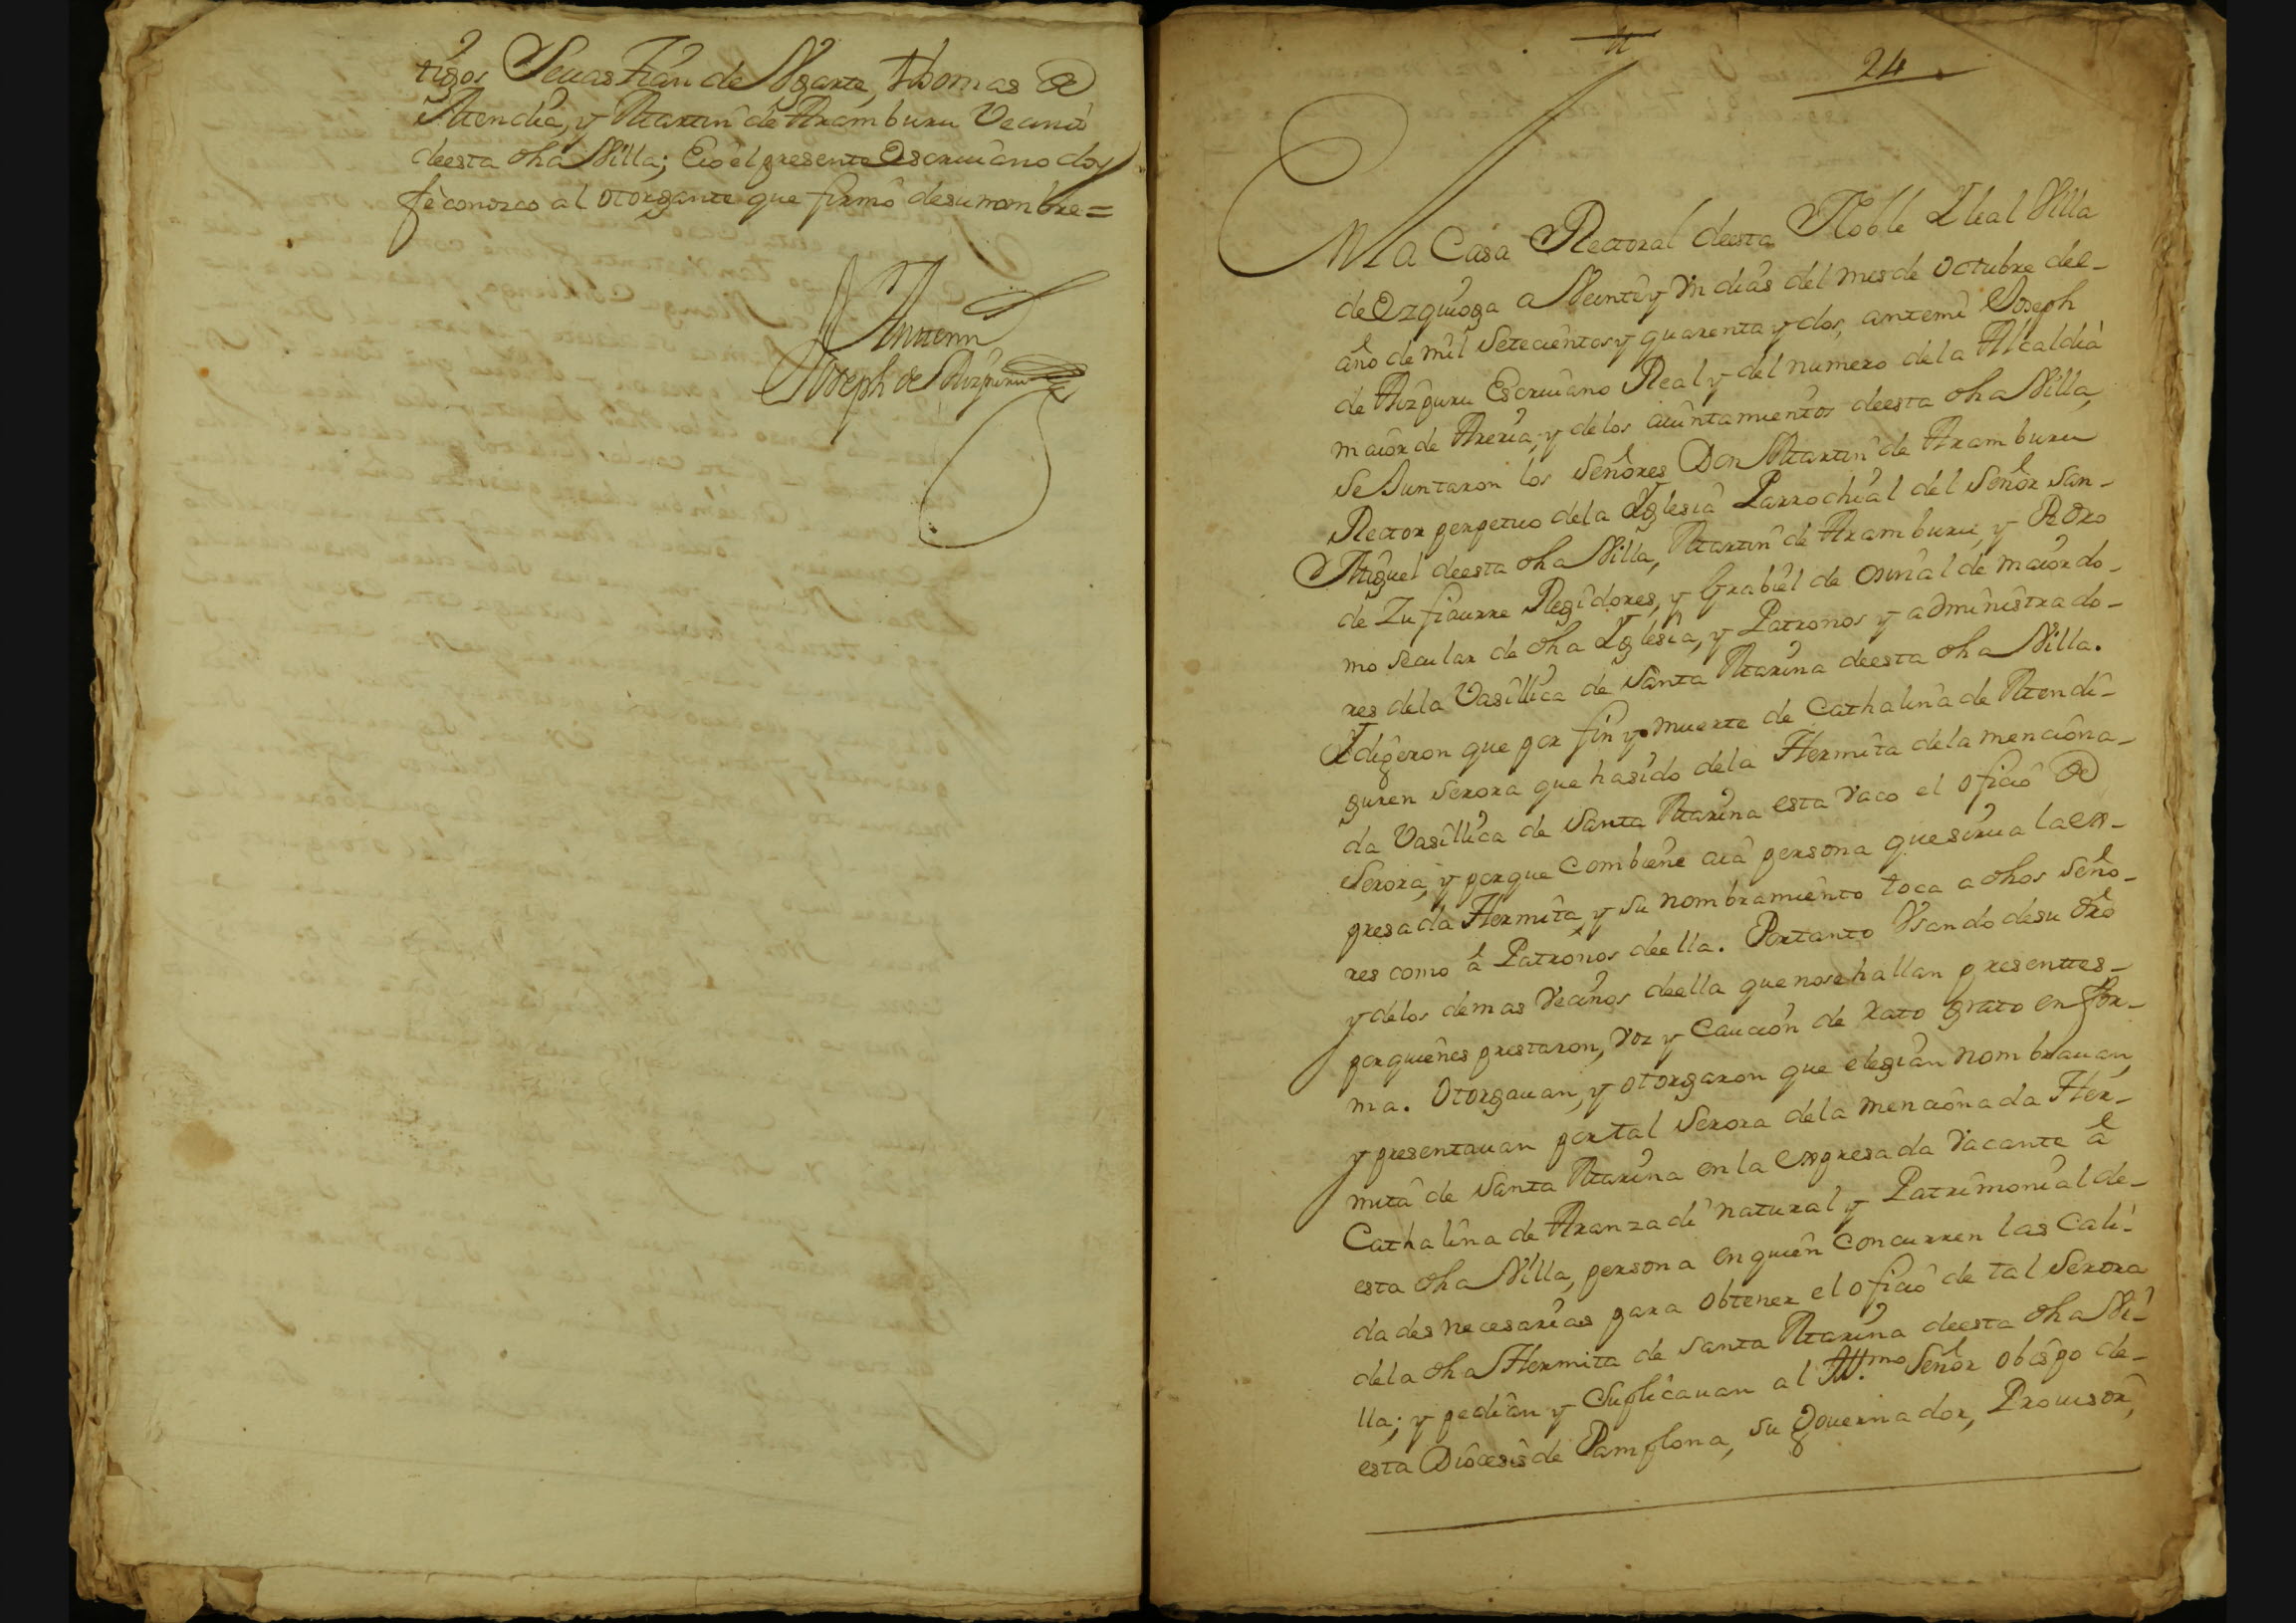 tigos Seuastian de Vgarte, Thomas de
Mendia, y Martin de Aramburu Vecinos
deesta dha Villa; Eio el presente Escriuano doy
fee conozco al otorgante que firmó desu nombre =
Antemi
Joseph de Aizpuru
24
En la Casa Rectoral deesta Noble Y leal Villa
de Ezquioga a Veinte y Vn dias del mes de Octubre del-
año de mil Setecientos y quarenta y dos, antemi Joseph
de Aizpuru Escriuano Real y del numero dela Alcaldia
maior de Areria, y delos aiuntamientos deesta dha Villa,
se Juntaron los Señores Don Martin de Aramburu
Rector perpetuo dela Yglesia Parrochial del Señor San-
Miguel deesta dha Villa, Martin de Aramburu, y Pedro
de Zufiaurre Regidores, y Grabiel de Oria de maiordo-
mo secular de dha Yglesia, y Patronos y administrado-
res dela Vasillica de Santa Marina deesta dha Villa.
Y digeron que por fin y muerte de Cathalina de Mendi-
guren Serora que hasido dela Hermita dela menciona-
da Vasillica de Santa Marina esta Vaco el oficio de
Serora, y porque Combiene aia persona que sirua la ex-
presada Hermita, y su nombramiento toca a dhos Seño-
res como â Patronos deella. Portanto Vsando desu dro
y delos demas Vecinos deella que nosehallan presenttes-
por quienes prestaron, Voz y Caucion de rato grato en for-
ma. Otorgauan, y otorgaron que elegian nombrauan,
y presentauan por tal Serora dela mencionada Her-
mita de Santa Marina en la expresada Vacante â
Cathalina de Aranzadi natural y Patrimonial de-
esta dha Villa, persona enquien Concurren las Cali-
dades necesarias para obtener el oficio de tal Serora
dela dha Hermita de Santa Marina deesta dha Vi-
lla; y pedian y Suplicauan al Illmo. Señor obispo de-
esta Diocesis de Pamplona, su Gouernador, Prouisor,